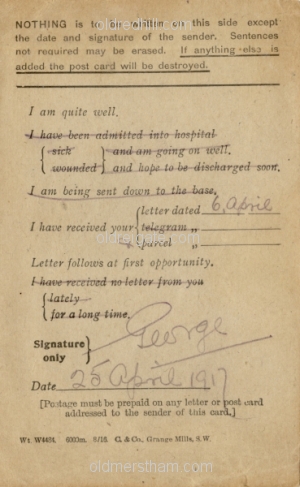 NOTHING is to be written on this side except
the date and signature of the sender. Sentences
not required may be erased. If anything else is
added the post card will be destroyed.
I am quite well.
I have been admitted into hospital
{ sick } and am going on well.
{ wounded } and hope to be discharged soon.
I am being sent down to the base.
I have received your { letter dated 6, April
telegram „
parcel „
Letter follows at first opportunity.
I have received no letter from you
{ lately
for a long time.
Signature only } George
Date 25 April 1917
[Postage must be prepaid on any letter or post card
addressed to the sender of this card.]
Wt. W4494. 8/16. C. & Co., Grange Mills, S.W.
oldmerstham.com
oldmerstham.com
oldmerstham.com
oldmerstham.com